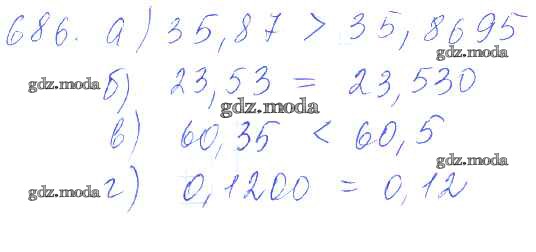 686. а) 35,87 > 35,8695
gdz.moda
gdz.moda б) 23,53 = 23,530
gdz.moda
в) 60,35 < 60,5
gdz.moda
gdz.moda г) 0,1200 = 0,12